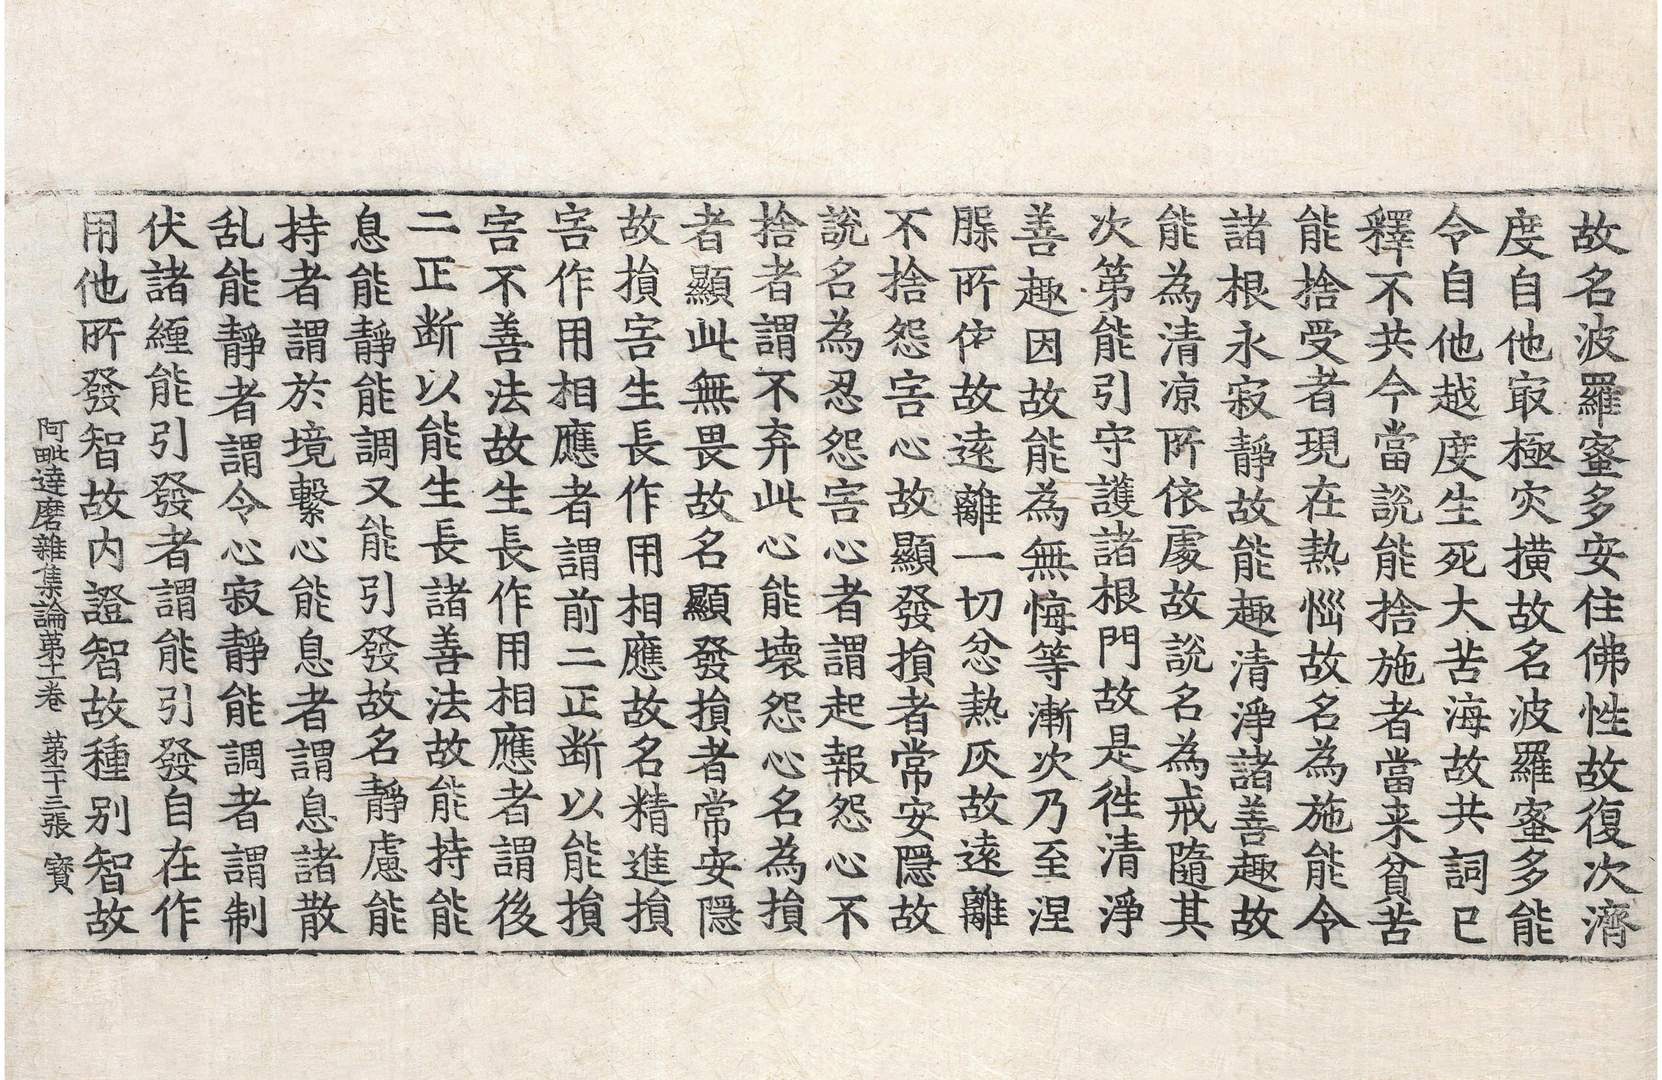 故名波羅蜜多安住佛性故復次濟
度自他㝡極灾横故名波羅蜜多能
令自他越度生死大苦海故共詞已
釋不共今當說能捨施者當来貧苦
能捨受者現在熱惱故名為施能令
諸根永寂靜故能趣清淨諸善趣故
能為清凉所依處故說名為戒隨其
次第能引守護諸根門故是徃清淨
善趣因故能為無悔等漸次乃至涅
脲所依故遠離一切忿熱灰故遠離
不捨怨害心故顯發損者常安隱故
說名為忍怨害心者謂起報怨心不
捨者謂不弃此心能壞怨心名為損
者顯此無畏故名顯發損者常安隱
故損害生長作用相應故名精進損
害作用相應者謂前二正断以能損
害不善法故生長作用相應者謂後
二正断以能生長諸善法故能持能
息能靜能調又能引發故名靜慮能
持者謂於境繫心能息者謂息諸散
乱能靜者謂令心寂靜能調者謂制
伏諸纏能引發者謂能引發自在作
用他所發智故内證智故種別智故
阿毗達磨雜集論第十一卷 第二十三張 寳